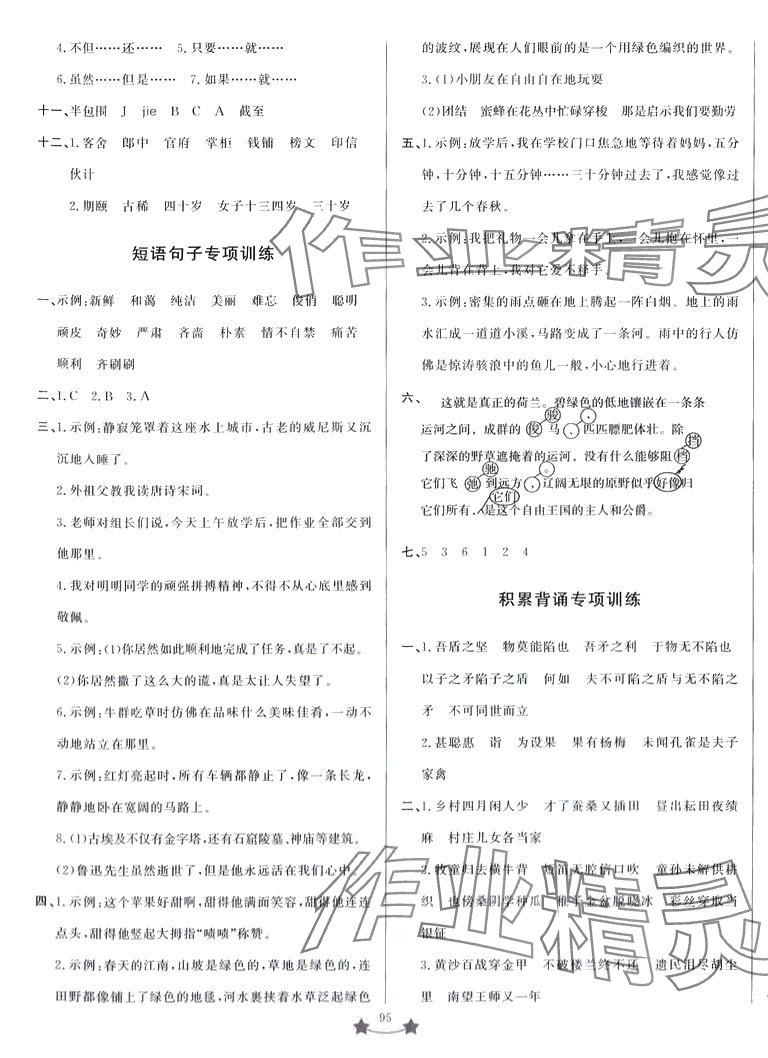 4.不但……还…… 5.只要……就……
6.虽然……但是…… 7.如果……就……
十一、半包围 J jie B C A 截至
十二、1.客舍 郎中 官府 掌柜 钱铺 榜文 印信
伙计
2.期颐 古稀 四十岁 女子十三四岁 三十岁
短语句子专项训练
一、示例:新鲜 和蔼 纯洁 美丽 难忘 俊俏 聪明
顽皮 奇妙 严肃 吝啬 朴素 情不自禁 痛苦
顺利 齐刷刷
二、1.C 2.B 3.A
三、1.示例:静寂笼罩着这座水上城市,古老的威尼斯又沉
沉地入睡了。
2.外祖父教我读唐诗宋词。
3.老师对组长们说,今天上午放学后,把作业全部交到
他那里。
4.我对明明同学的顽强拼搏精神,不得不从心底里感到
敬佩。
5.示例:(1)你居然如此顺利地完成了任务,真是了不起。
(2)你居然撒了这么大的谎,真是太让人失望了。
6.示例:牛群吃草时仿佛在品味什么美味佳肴,一动不
动地站立在那里。
7.示例:红灯亮起时,所有车辆都静止了,像一条长龙,
静静地卧在宽阔的马路上。
8.(1)古埃及不仅有金字塔,还有石窟陵墓、神庙等建筑。
(2)鲁迅先生虽然逝世了,但是他永远活在我们心中。
四、1.示例:这个苹果好甜啊,甜得他满面笑容,甜得他连连
点头,甜得他竖起大拇指“啧啧”称赞。
2.示例:春天的江南,山坡是绿色的,草地是绿色的,连
田野都像铺上了绿色的地毯,河水裹挟着绿色泛起绿色
的波纹,展现在人们眼前的是一个用绿色编织的世界。
3.(1)小朋友在自由自在地玩耍
(2)团结 蜜蜂在花丛中忙碌穿梭 那是启示我们要勤劳
五、1.示例:放学后,我在学校门口焦急地等待着妈妈,五分
钟,十分钟,十五分钟……三十分钟过去了,我感觉像过
去了几个春秋。
2.示例:我把礼物一会儿拿在手上,一会儿抱在怀里,一
会儿背在背上,我对它爱不释手。
3.示例:密集的雨点砸在地上腾起一阵白烟。地上的雨
水汇成一道道小溪,马路变成了一条河。雨中的行人仿
佛是惊涛骇浪中的鱼儿一般,小心地行进着。
六、 这就是真正的荷兰。碧绿色的低地镶嵌在一条条
骏 、
运河之间,成群的俊马、匹匹膘肥体壮。除
挡
了深深的野草遮掩着的运河,没有什么能够阻档
驰 。
它们弛到远方、辽阔无垠的原野似乎好像归
它们
它们所有,是这个自由王国的主人和公爵。
七、5 3 6 1 2 4
积累背诵专项训练
一、1.吾盾之坚 物莫能陷也 吾矛之利 于物无不陷也
以子之矛陷子之盾 何如 夫不可陷之盾与无不陷之
矛 不可同世而立
2.甚聪惠 诣 为设果 果有杨梅 未闻孔雀是夫子
家禽
二、1.乡村四月闲人少 才了蚕桑又插田 昼出耘田夜绩
麻 村庄儿女各当家
2.牧童归去横牛背 短笛无腔信口吹 童孙未解供耕
织 也傍桑阴学种瓜 稚子金盆脱晓冰 彩丝穿取当
银钲
3.黄沙百战穿金甲 不破楼兰终不还 遗民泪尽胡尘
里 南望王师又一年
95
作业精灵
作业精灵